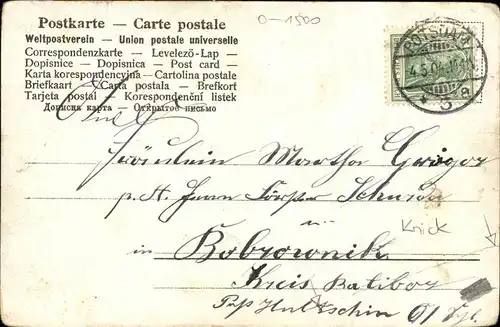 Postkarte — Carte postale
0-1500
Weltpostverein — Union postale universelle
Correspondenzkarte — Levelező-Lap —
Dopisnice — Dopisnica — Post card —
Karta korespondencyjna — Cartolina postale
Briefkaart — Carta postala — Brefkort
Tarjeta postal — Korespondenční listek
Дописна карта — Открытое письмо
POTSDAM
4.5.04
* 3 a
Fräulein Martha Grögor
p. H. Herrn Förster
in
Knick
Bobrownik
Kreis Ratibor
Hultschin O/